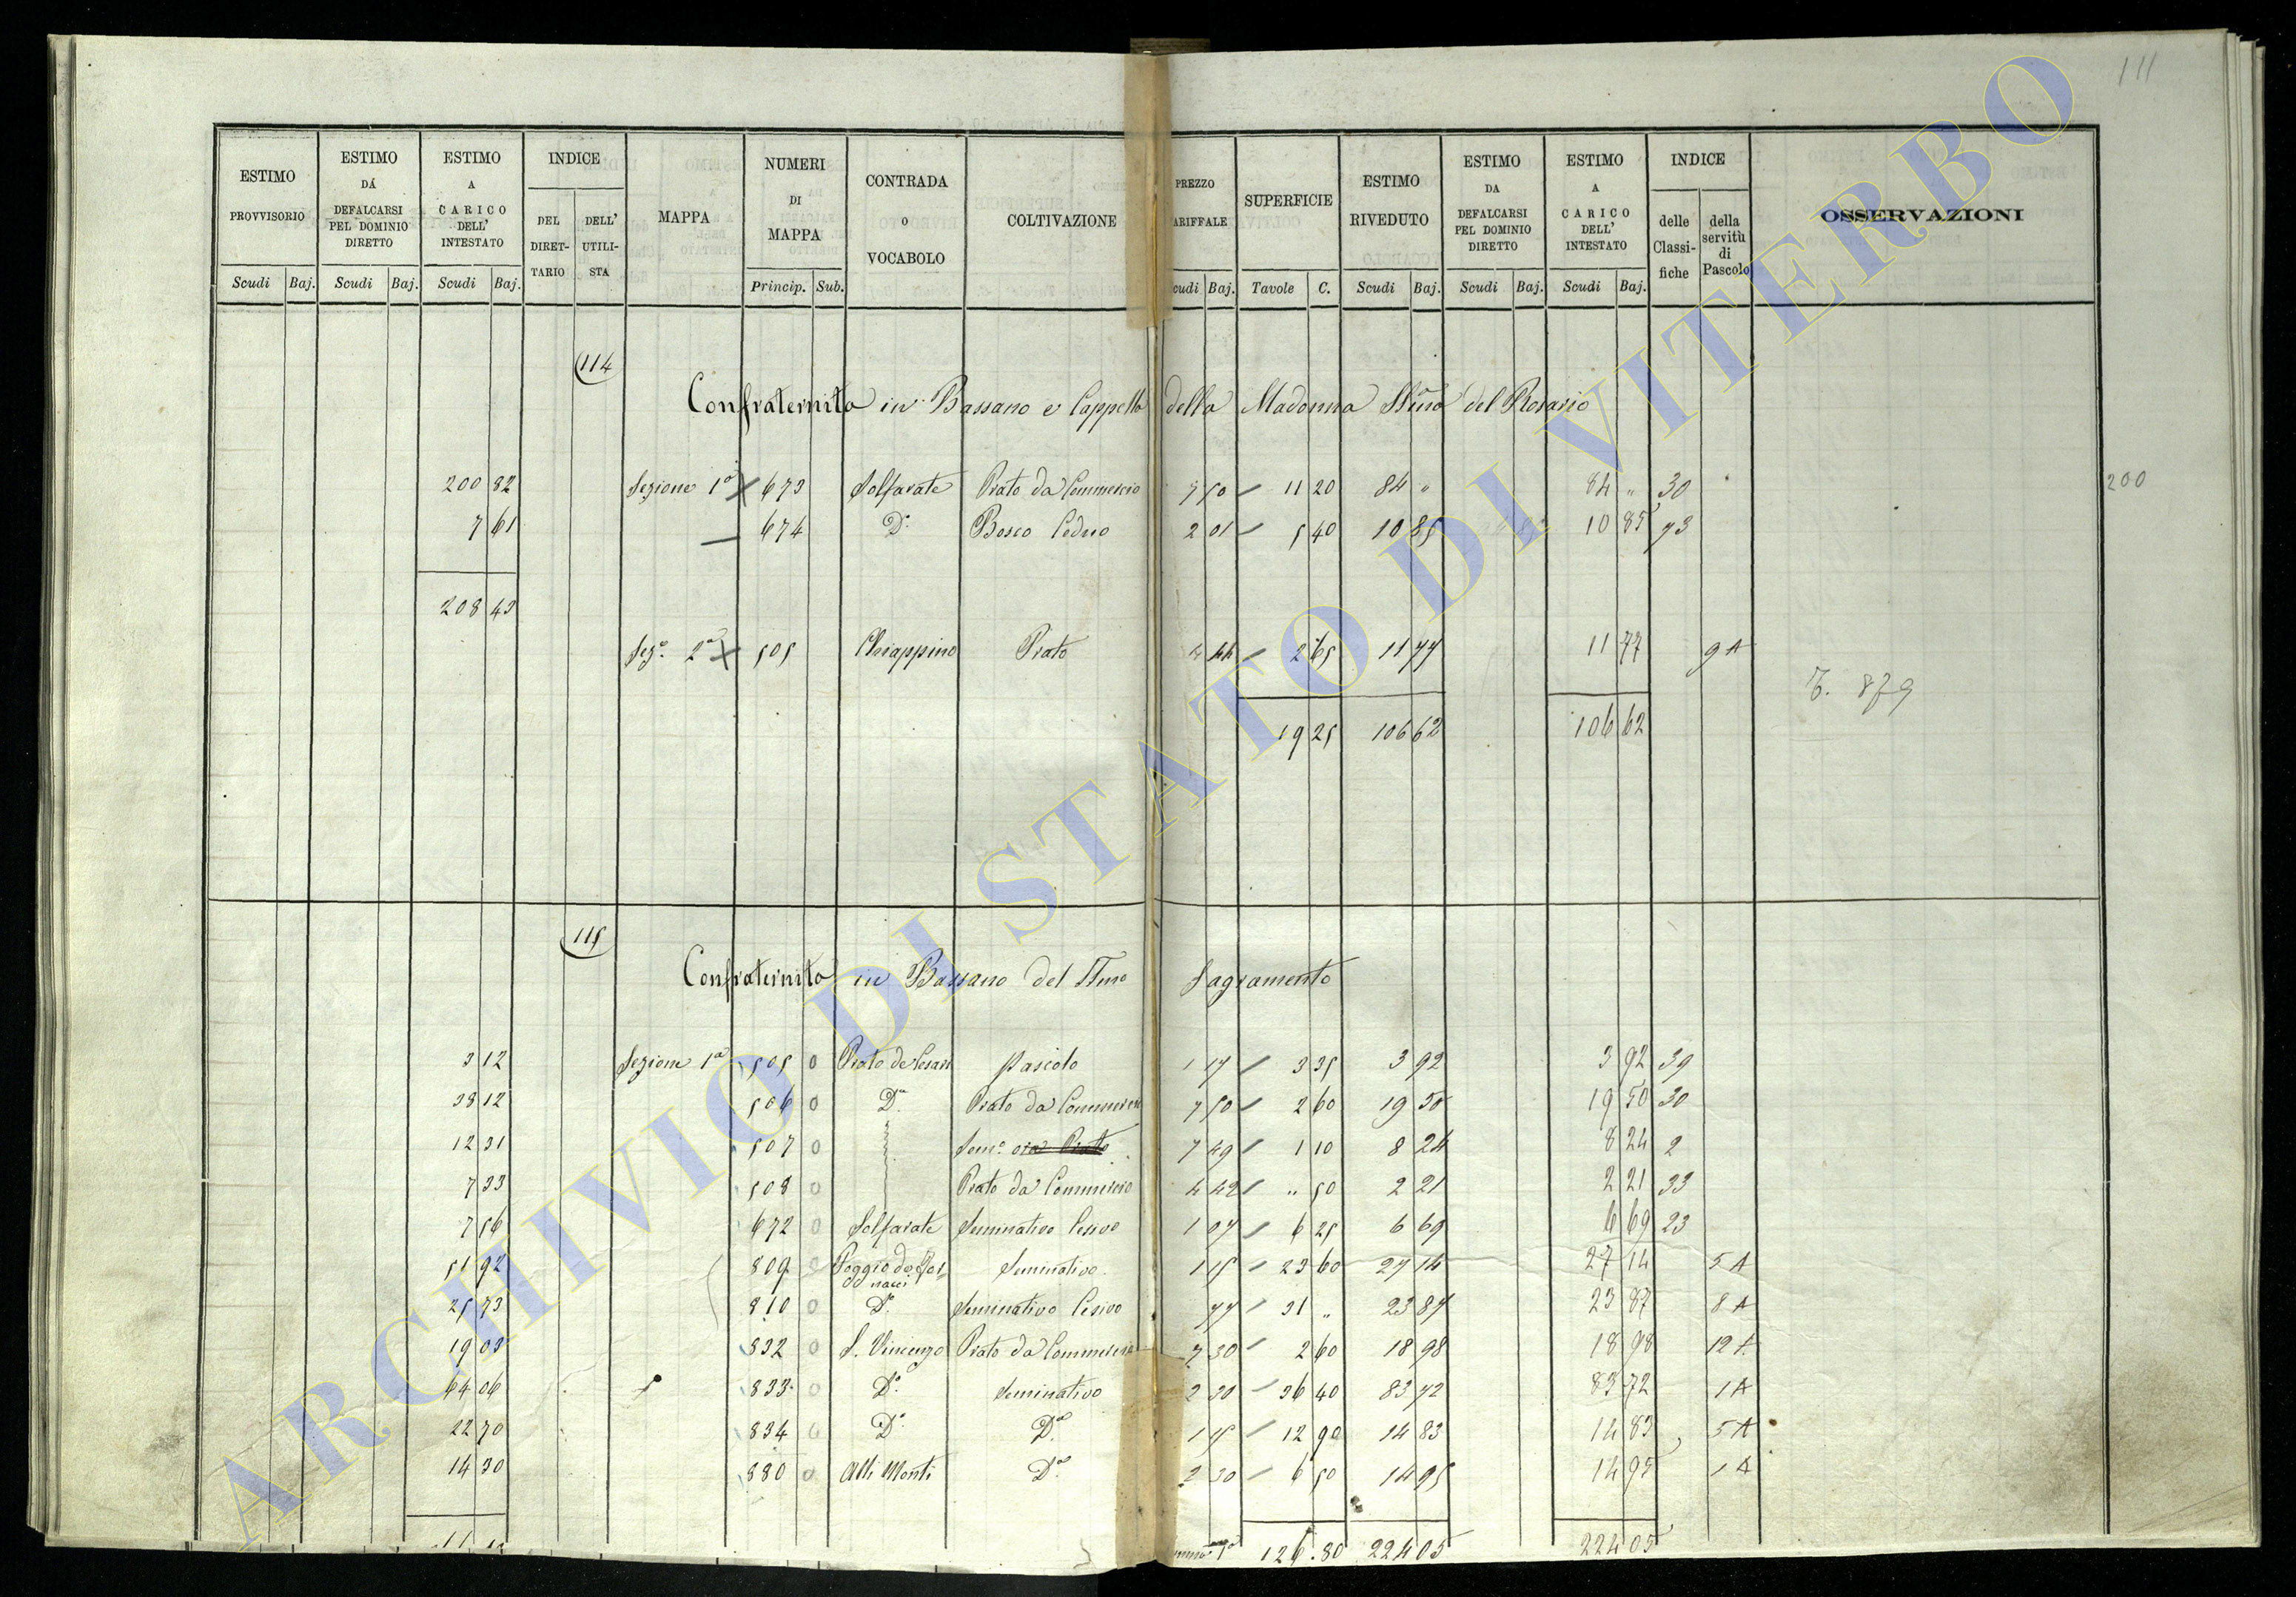 111
ESTIMO PROVVISORIO Scudi Baj.
ESTIMO DÁ DEFALCARSI PEL DOMINIO DIRETTO Scudi Baj.
ESTIMO A CARICO DELL' INTESTATO Scudi Baj.
INDICE DEL DIRET-TARIO DELL' UTILI-STA
MAPPA
NUMERI DI MAPPA Princip. Sub.
CONTRADA o VOCABOLO
COLTIVAZIONE
PREZZO ARIFFALE cudi Baj.
SUPERFICIE Tavole C.
ESTIMO RIVEDUTO Scudi Baj.
ESTIMO DA DEFALCARSI PEL DOMINIO DIRETTO Scudi Baj.
ESTIMO A CARICO DELL' INTESTATO Scudi Baj.
INDICE delle Classi-fiche della servitù di Pascolo
OSSERVAZIONI
114
Confraternita in Bassano e Cappella della Madonna SSma del Rosario
200 82 Sezione 1a 673 Solfarate Prato da Commercio 7 50 11 20 84 " 84 " 30 200
7 61 674 Do. Bosco Ceduo 2 01 5 40 10 85 10 85 73
208 43
Sez.e 2a 505 Chiappino Prato 4 44 2 65 11 77 11 77 9 A
T. 879
19 25 106 62 106 62
115
Confraternita in Bassano del SSmo Sagramento
3 12 Sezione 1a 505 0 Prato de Cesari Pascolo 1 17 3 35 3 92 3 92 39
38 12 506 0 Do. Prato da Commercio 7 50 2 60 19 50 19 50 30
12 31 507 0 Sem.o ora Prato 7 49 1 10 8 24 8 24 2
7 33 508 0 Prato da Commercio 4 42 " 50 2 21 2 21 33
7 56 672 0 Solfarate Seminativo Cesivo 1 07 6 25 6 69 6 69 23
51 92 809 0 Poggio de nacci Seminativo 1 15 23 60 27 14 27 14 5 A
25 73 810 0 Do. Seminativo Cesivo 77 31 " 23 87 23 87 8 A
19 03 832 0 S. Vincenzo Prato da Commercio 7 30 2 60 18 98 18 98 12 A
64 06 833 0 Do. Seminativo 2 30 36 40 83 72 83 72 1 A
22 70 834 0 Do. Do. 1 15 12 90 14 83 14 83 5 A
14 30 880 0 Alli Monti Do. 2 30 6 50 14 95 14 95 1 A
126.80 224 05 224 05
ARCHIVIO DI STATO DI VITERBO